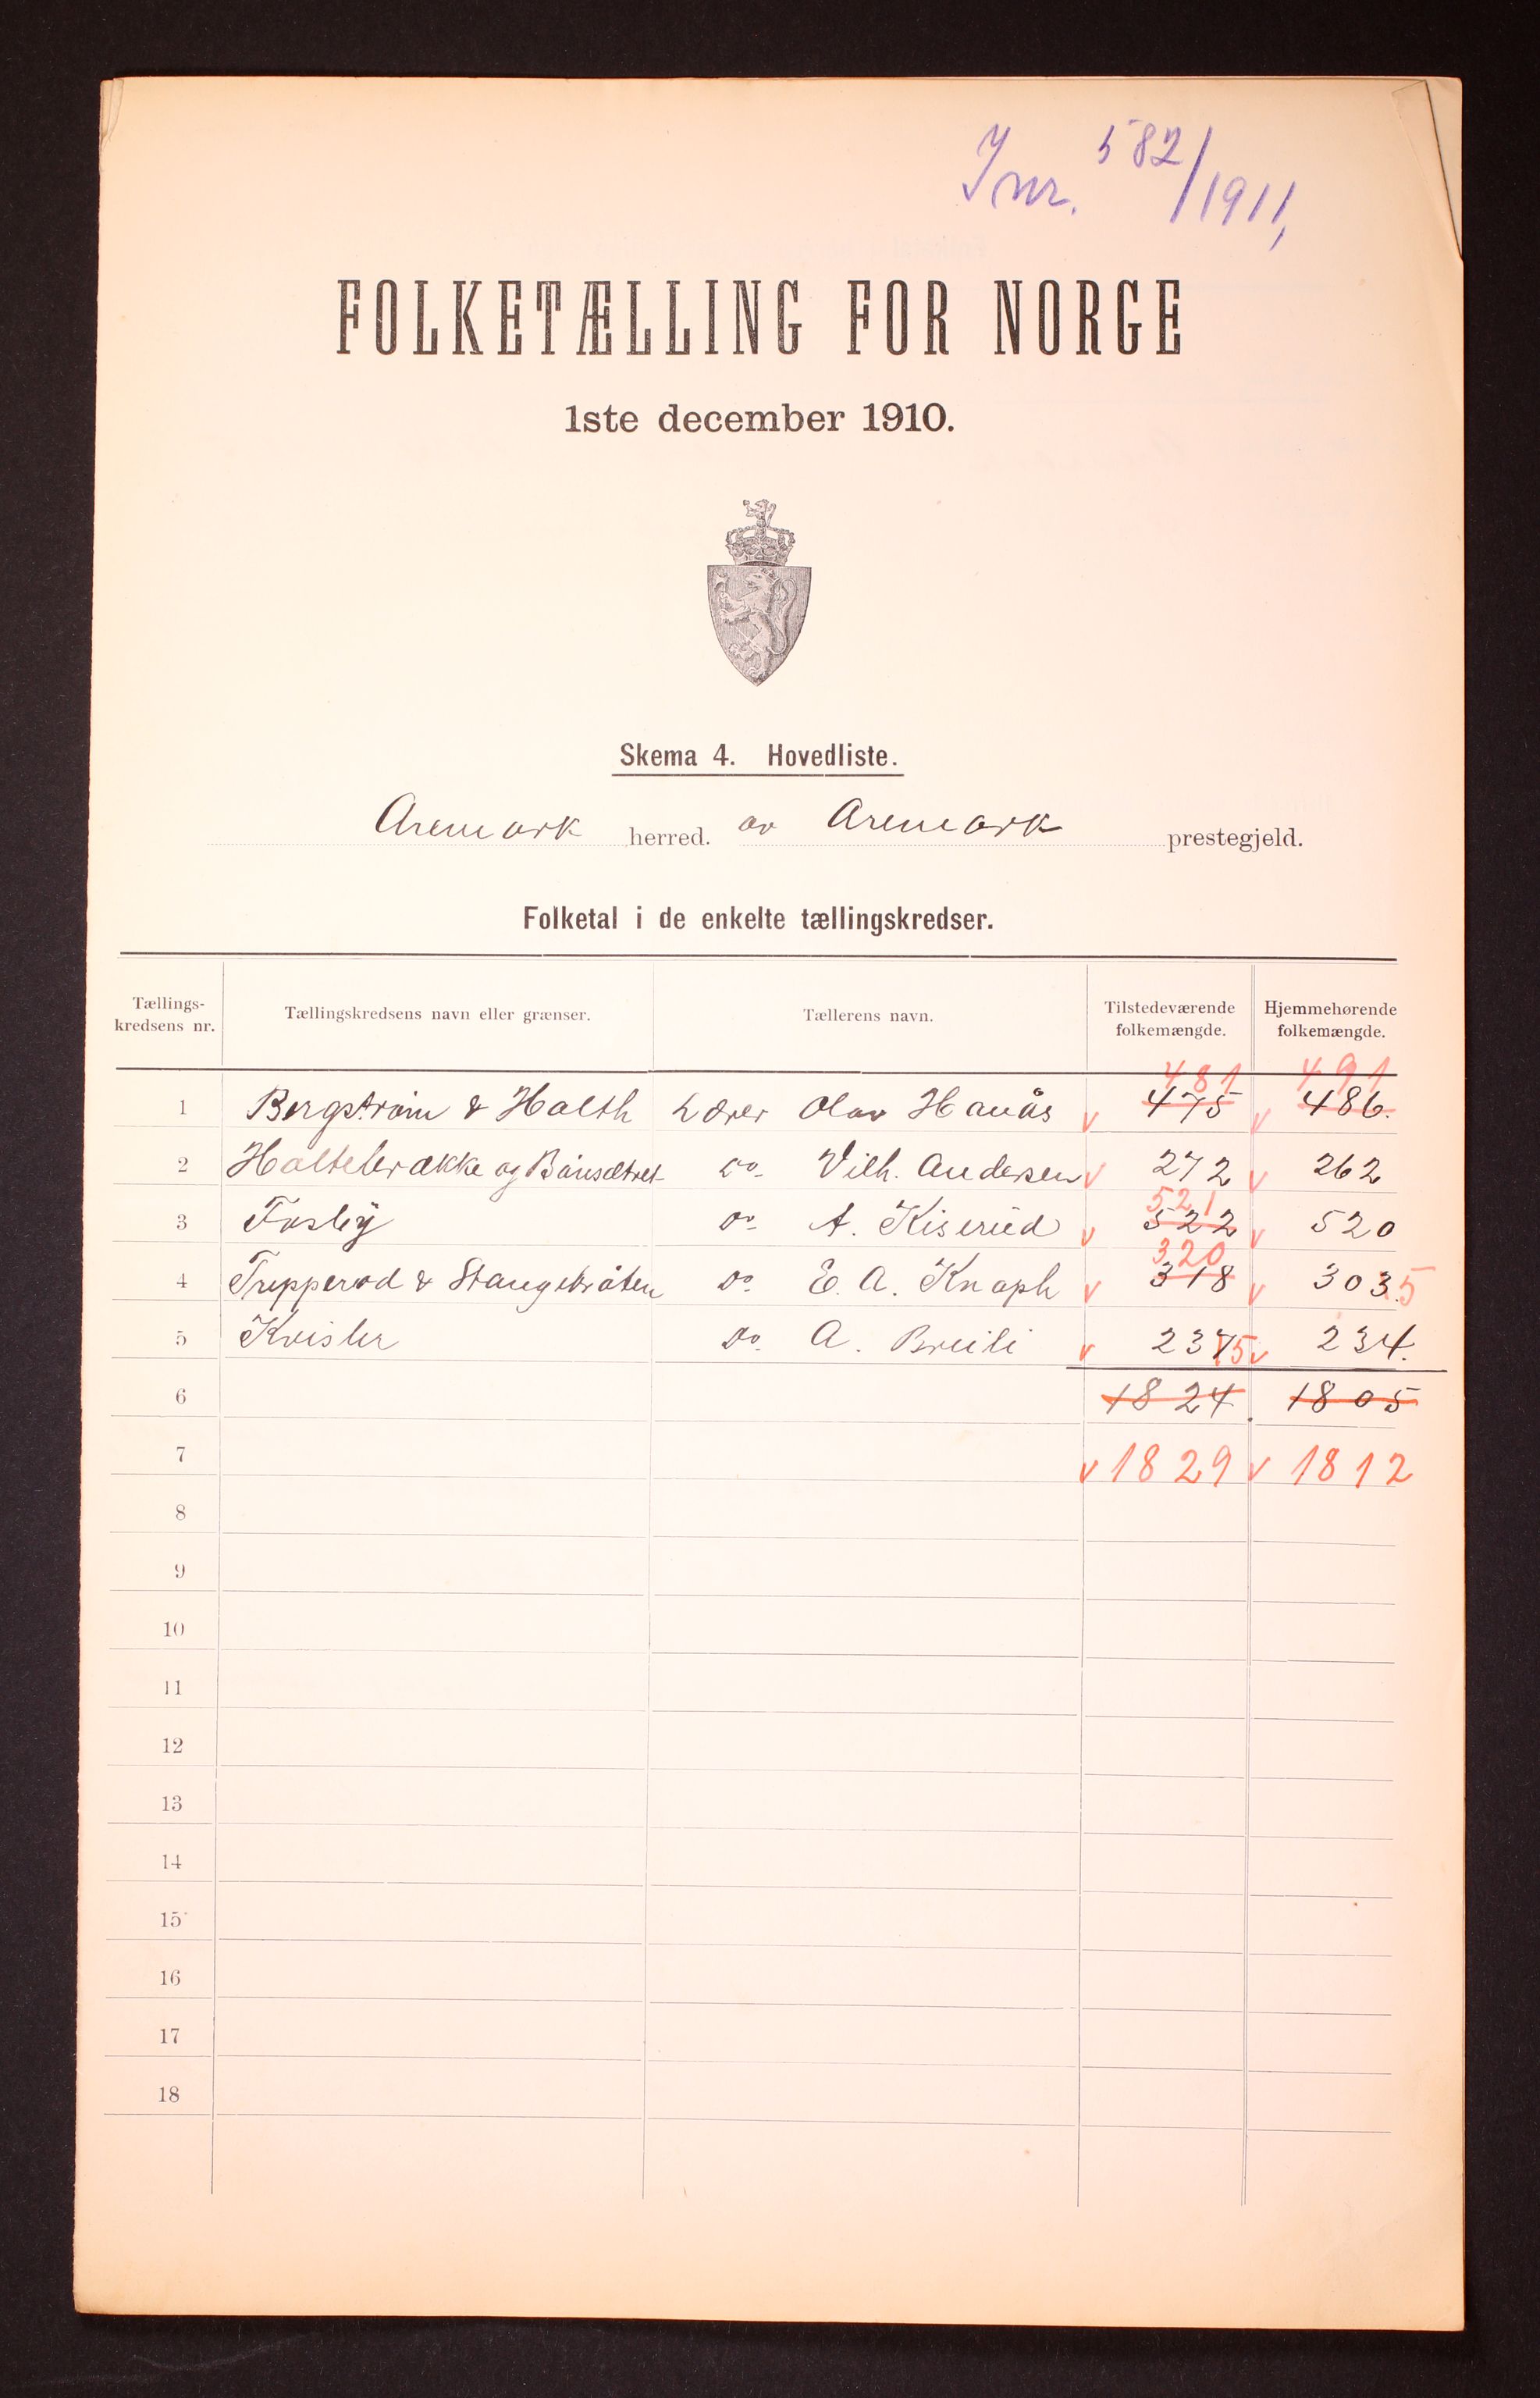 Jnr. 582/1911,
FOLKETÆLLING FOR NORGE
1ste december 1910.
Skema 4. Hovedliste.
Aremark herred. av Aremark prestegjeld.
Folketal i de enkelte tællingskredser.
Tællings-kredsens nr. Tællingskredsens navn eller grænser. Tællerens navn. Tilstedeværende folkemængde. Hjemmehørende folkemængde.
481 491
1 Bergstrøm & Holth Lærer Olav Hanås 475 486.
2 Holtebrække og do. Vilh. Andersen 272 262
521
3 Fosby do. A. Kiserud 522 520
320
4 Tripperød & Stangebråten do. E. A. Knoph 318 303.5
5 Kvisler do. A. Breili 2375 234.
6 1824. 1805
7 1829 1812
8
9
10
11
12
13
14
15
16
17
18